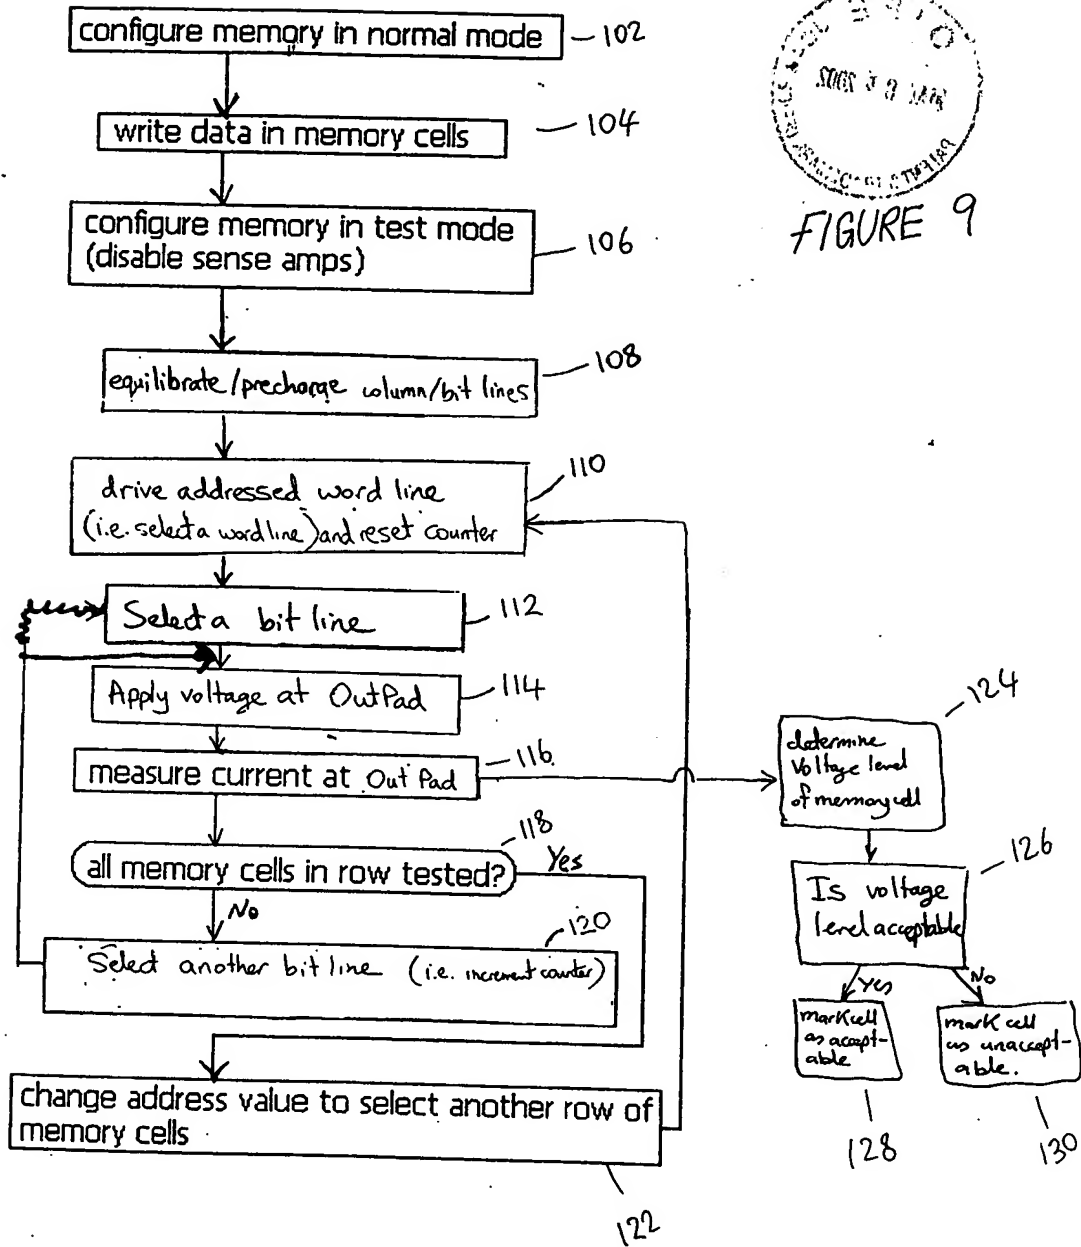 configure memory in normal mode
102
write data in memory cells
104
configure memory in test mode
(disable sense amps)
106
FIGURE 9
equilibrate/precharge column/bit lines
108
drive addressed word line
(i.e. select a word line) and reset counter
110
Select a bit line
112
Apply voltage at OutPad
114
measure current at Out Pad
116
all memory cells in row tested?
118
Yes
No
Select another bit line (i.e. increment counter)
120
change address value to select another row of
memory cells
122
determine
Voltage level
of memory cell
124
Is voltage
level acceptable
126
Yes
No
mark cell
as accept-
able
128
mark cell
as unaccept-
able.
130